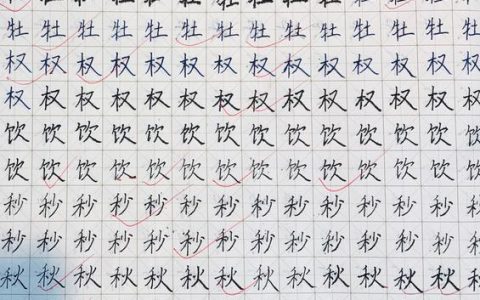 牡牡牡牡牡牡牡牡牡牡牡牡牡牡
权权权权权权权权权权权权权权
权权权权权权权权权权权权权权
饮饮饮饮饮饮饮饮饮饮饮饮饮饮
饮饮饮饮饮饮饮饮饮饮饮饮饮饮
秒秒秒秒秒秒秒秒秒秒秒秒秒秒
秒秒秒秒秒秒秒秒秒秒秒秒秒秒
秋秋秋秋秋秋秋秋秋秋秋秋秋秋